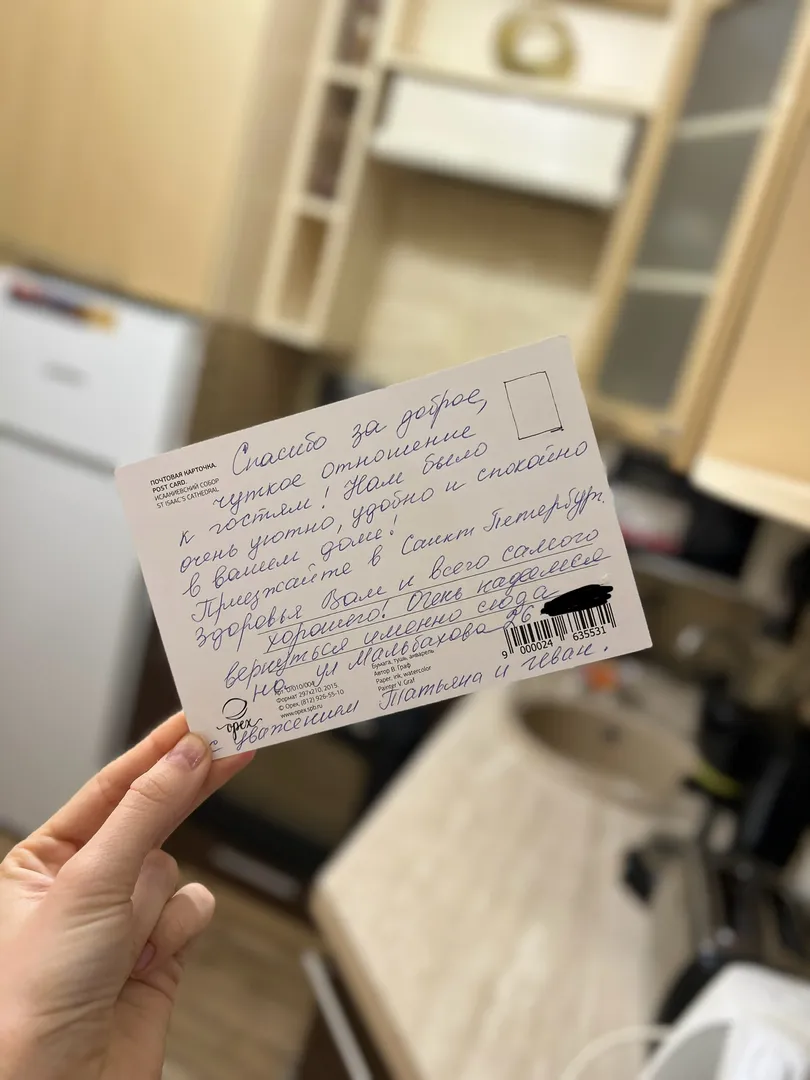 ПОЧТОВАЯ КАРТОЧКА.
POST CARD.
ИСААКИЕВСКИЙ СОБОР
ST ISAAC'S CATHEDRAL
Спасибо за доброе,
чуткое отношение
к гостям! Нам было
очень уютно, удобно и спокойно
в вашем доме!
Приезжайте в Санкт Петербург.
Здоровья Вам и всего самого
хорошего! Очень надеемся
вернуться именно сюда
на ул Мальбахова 26
с уважением Татьяна и
9 000024 635531
Бумага, тушь, акварель
Автор В. Граф
Paper, ink, watercolor
Painter V. Graf
Формат 297x210, 2015
© Орех, (812) 926-55-10
www.opex.spb.ru
орех